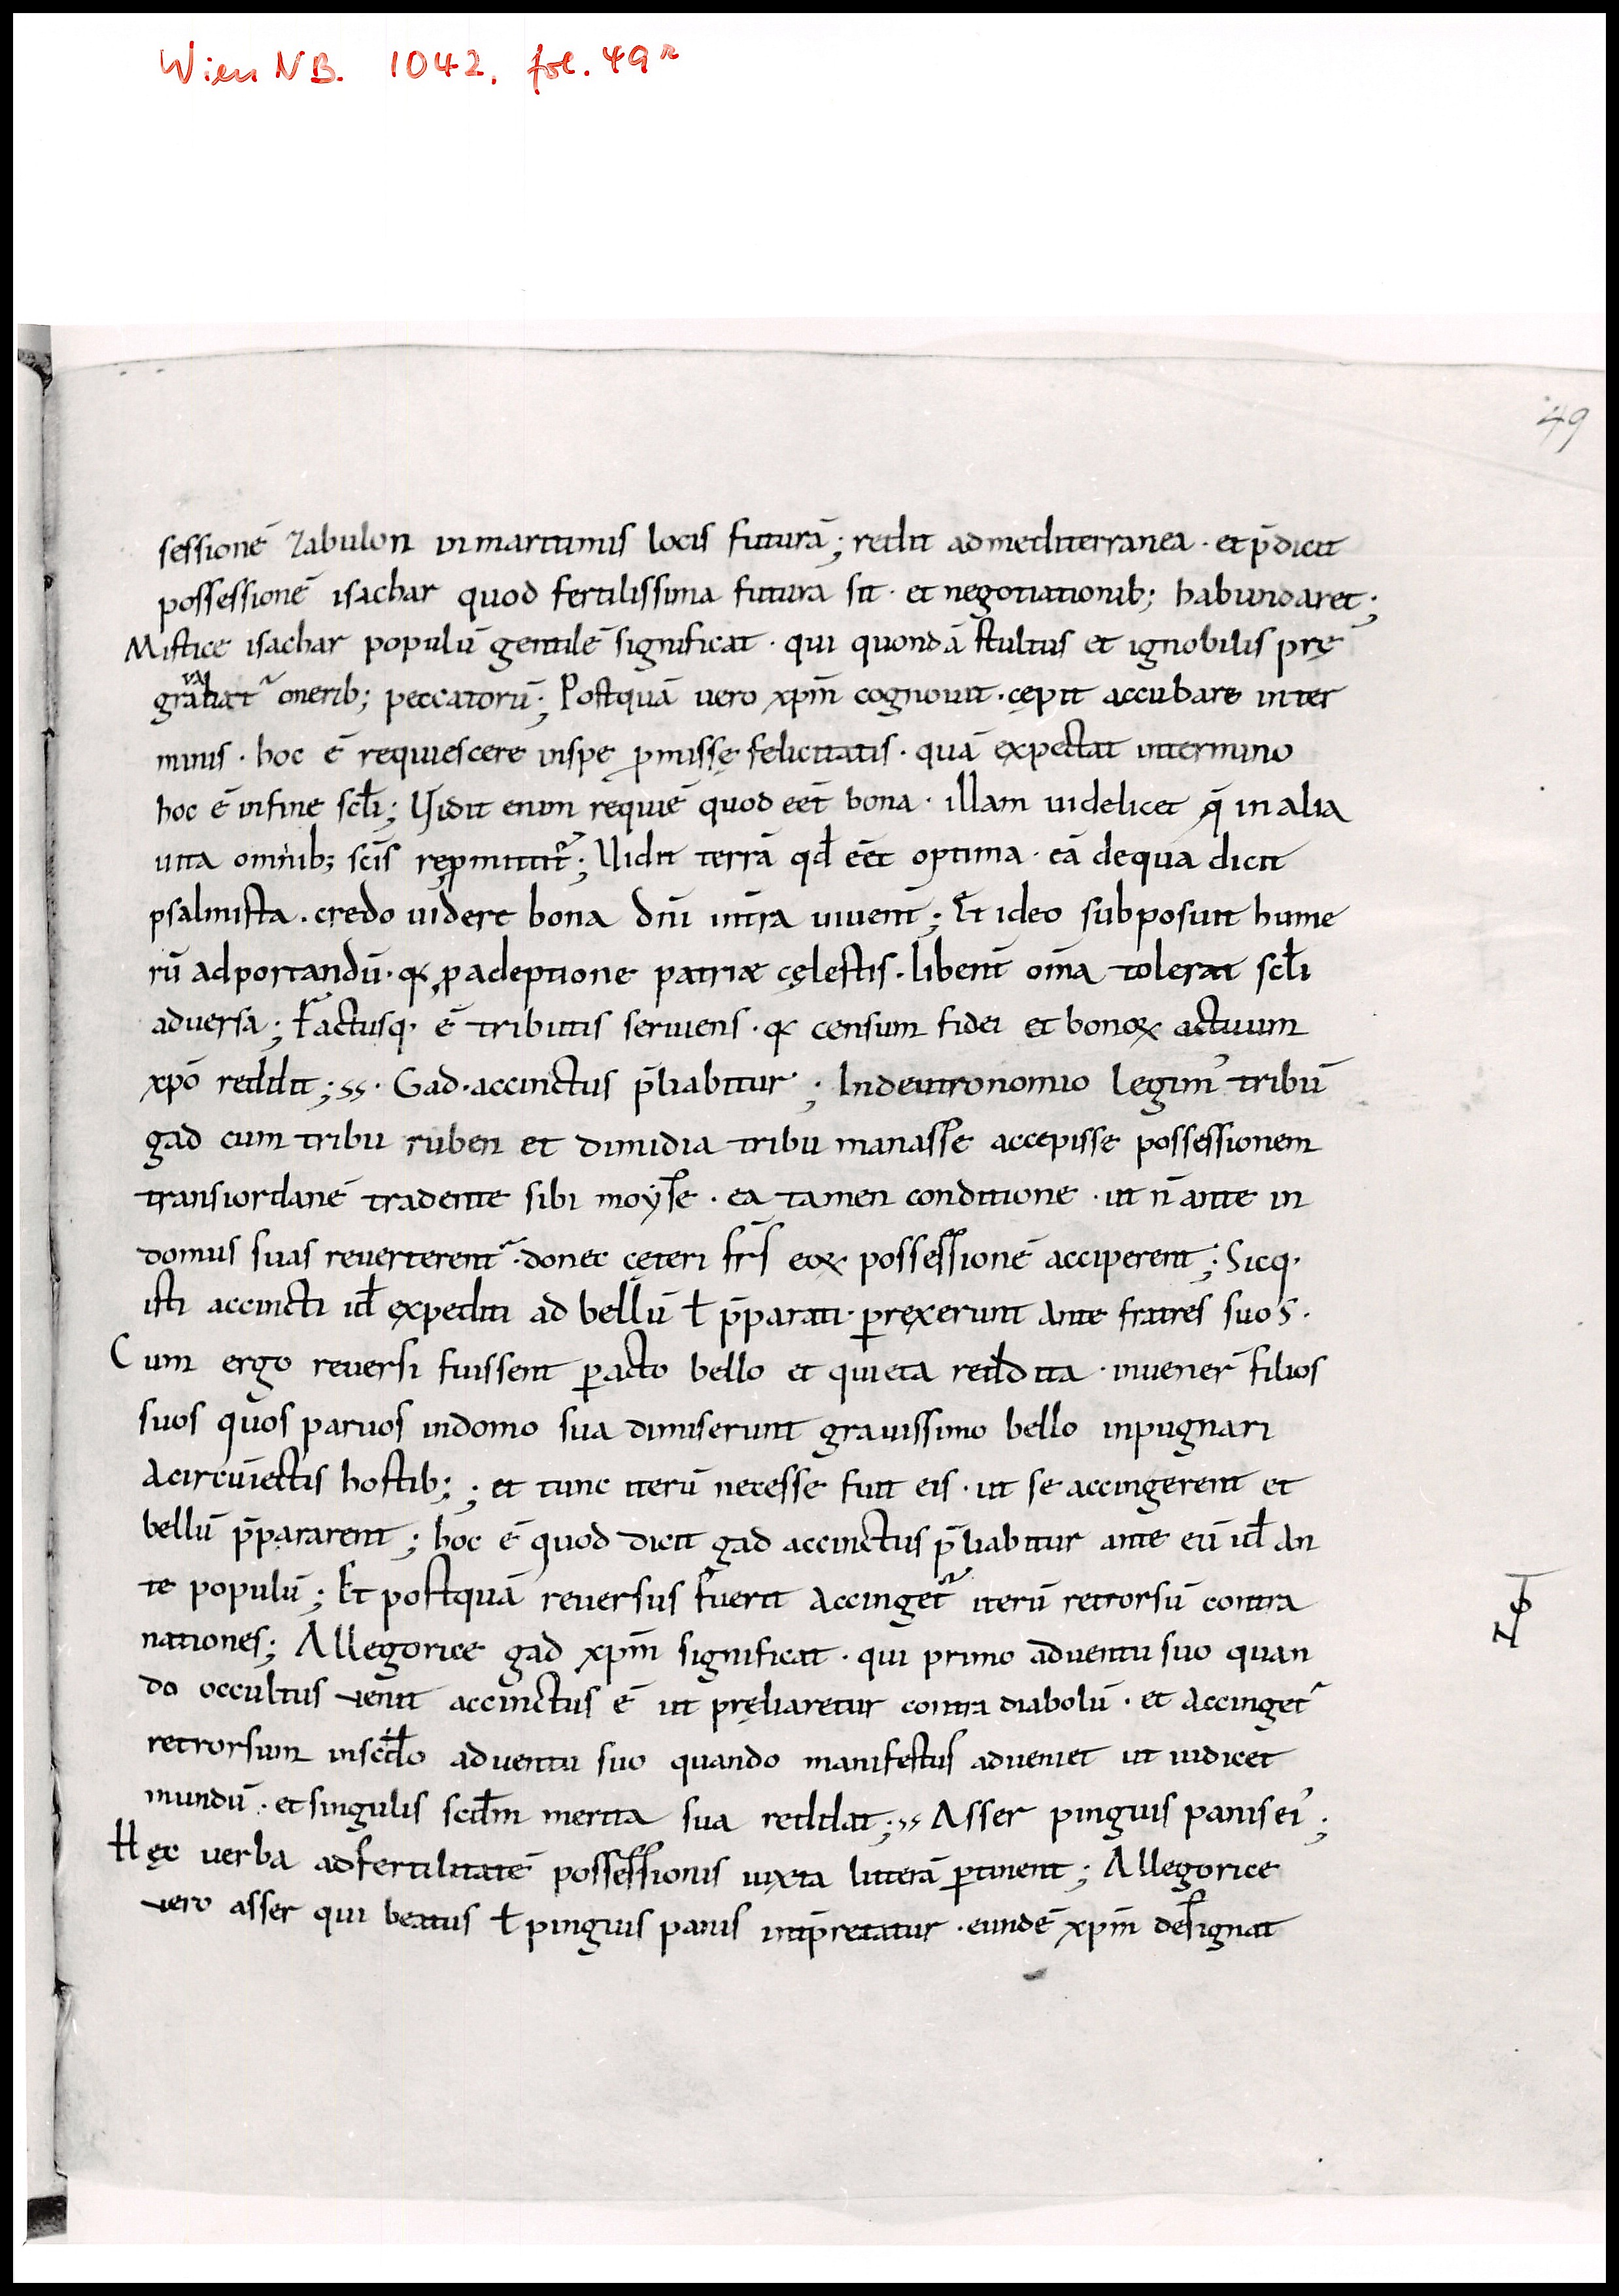 Wien NB. 1042, fol. 49r
49
sessionē zabulon in maritimis locis futurā; redit ad mediterranea · et p̄dicit
possessionē isachar quod fertilissima futura sit · et negotiationib; habundaret;
Mistice isachar populū gentilē significat · qui quondā stultus et ignobilis prę
onerib; peccatorū; Postquā vero xp̄m cognouit · cępit accubare inter
minis · hoc ē requiescere in spe ꝓmissę felicitatis · quā expectat in termino
hoc ē in fine sc̄li; Uidit enim requiē quod eēt bona · illam uidelicet q̄ in alia
uita omnib; sc̄is repmittit᷑; Uidit terrā qd̄ eēt optima · eā de qua dicit
psalmista · credo uidere bona dn̄i in t̄ra uiuent̄; Et ideo subposuit hume
rū ad portandū · qꝛ ꝓ adeptione patriæ cęlestis · libent̄ om̄a tolerat sc̄li
aduersa; Factusq· ē tributis seruiens · qꝛ censum fidei et bonoꝝ actuum
xp̄o reddit; ss · Gad · accinctus p̄liabitur; In deutronomio legim᾿ tribū
gad cum tribu ruben et dimidia tribu manasse accepisse possessionem
trans iordanē tradente sibi moyse · ea tamen conditione · ut n̄ ante in
domus suas reuerterent᷑ · donec cęteri fr̄s eoꝝ possessionē acciperent; Sicq·
isti accincti id̄ expediti ad bellū ł p̄parati · perrexerunt ante fratres suos ·
Cum ergo reuersi fuissent ꝑacto bello et quieta reddita · inuener̄ filios
suos quos paruos in domo sua dimiserunt grauissimo bello inpugnari
a circūiectis hostib; ; et tunc iterū necesse fuit eis · ut se accingerent et
bellū p̄pararent; hoc ē quod dicit gad accinctus p̄liabitur ante eū id̄ an
te populū; Et postquā reuersus fuerit accinget᷑ iterū retrorsū contra
nationes; Allegorice gad xp̄m significat · qui primo aduentu suo quan
do occultus uenit accinctus ē ut pręliaretur contra diabolū · et accinget᷑
retrorsum in sc̄do aduentu suo quando manifestus adueniet ut iudicet
mundū · et singulis scd̄m merita sua reddat; ss Asser pinguis panis ei᾿;
Hęc uerba ad fertilitatē possessionis iuxta litterā ꝑtinent; Allegorice
uero asser qui beatus ł pinguis panis int̄p̄retatur · eundē xp̄m designat